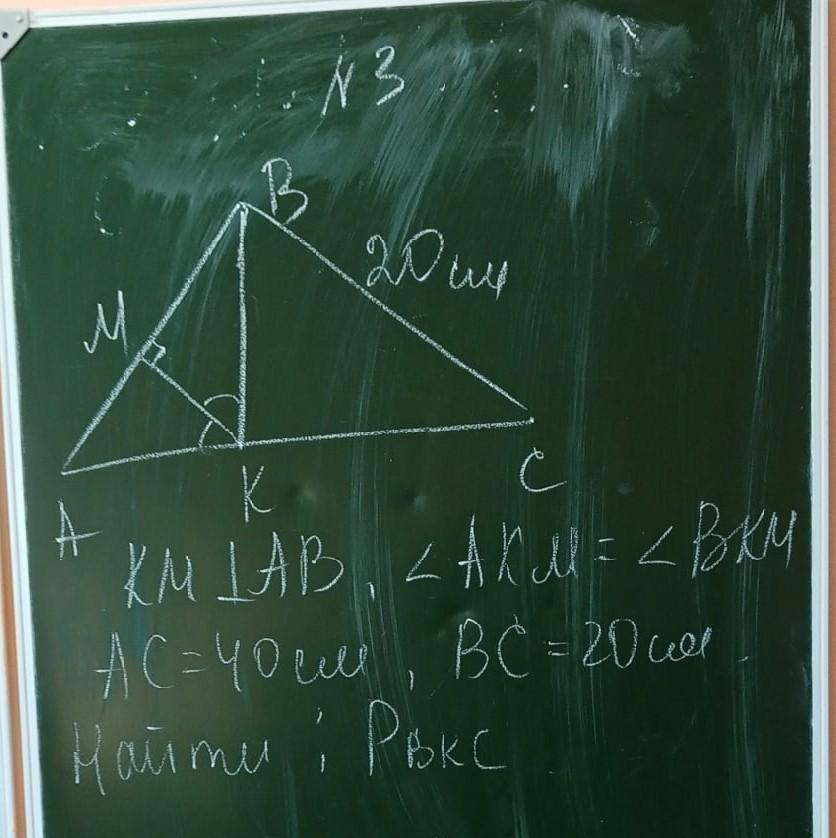 N 3
B
20 см
M
K
C
A
KM ⊥ AB, ∠AKM = ∠BKM
AC = 40 см, BC = 20 см.
Найти: P BKC